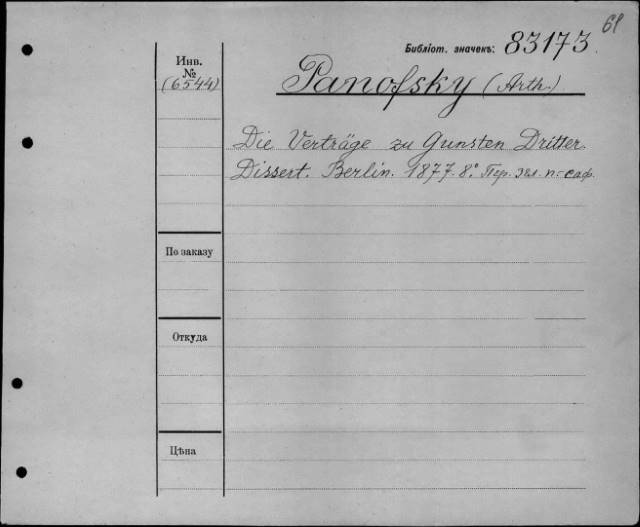 61
Библіот. значекъ: 83173.
Инв.
№
(6544)
Panofsky (Arth.)
Die Verträge zu Gunsten Dritter.
Dissert. Berlin. 1877. 8° Пер. зел. п.-саф.
По заказу
Откуда
Цѣна